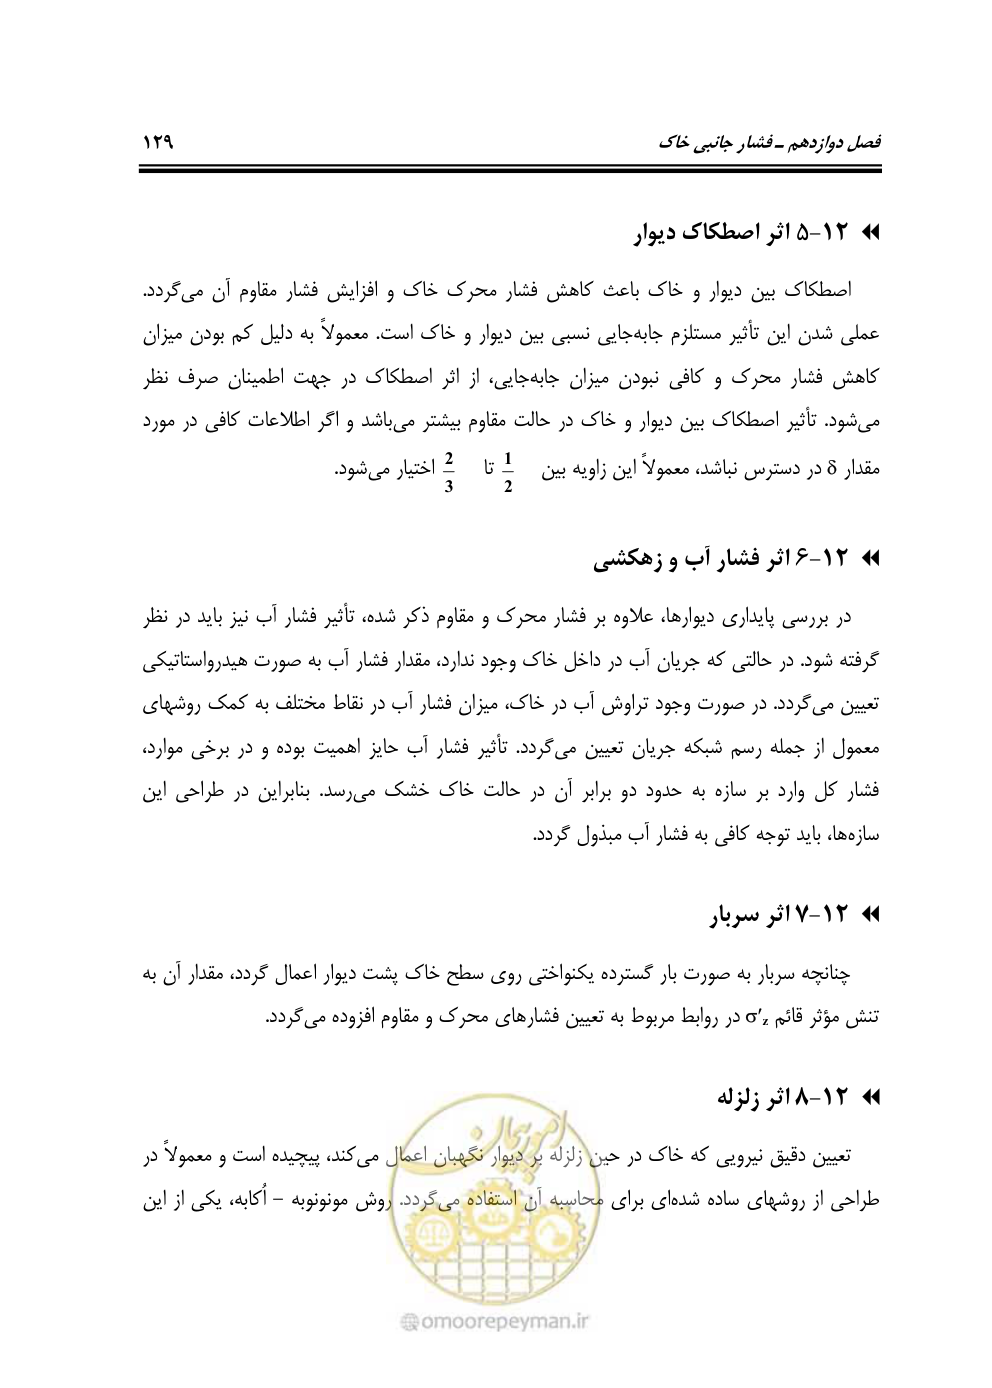 فصل دوازدهم ـ فشار جانبی خاک ۱۲۹
۱۲-۵ اثر اصطکاک دیوار
اصطکاک بین دیوار و خاک باعث کاهش فشار محرک خاک و افزایش فشار مقاوم آن می‌گردد.
عملی شدن این تأثیر مستلزم جابه‌جایی نسبی بین دیوار و خاک است. معمولاً به دلیل کم بودن میزان
کاهش فشار محرک و کافی نبودن میزان جابه‌جایی، از اثر اصطکاک در جهت اطمینان صرف نظر
می‌شود. تأثیر اصطکاک بین دیوار و خاک در حالت مقاوم بیشتر می‌باشد و اگر اطلاعات کافی در مورد
مقدار δ در دسترس نباشد، معمولاً این زاویه بین 1/2 تا 2/3 اختیار می‌شود.
۱۲-۶ اثر فشار آب و زهکشی
در بررسی پایداری دیوارها، علاوه بر فشار محرک و مقاوم ذکر شده، تأثیر فشار آب نیز باید در نظر
گرفته شود. در حالتی که جریان آب در داخل خاک وجود ندارد، مقدار فشار آب به صورت هیدرواستاتیکی
تعیین می‌گردد. در صورت وجود تراوش آب در خاک، میزان فشار آب در نقاط مختلف به کمک روشهای
معمول از جمله رسم شبکه جریان تعیین می‌گردد. تأثیر فشار آب حایز اهمیت بوده و در برخی موارد،
فشار کل وارد بر سازه به حدود دو برابر آن در حالت خاک خشک می‌رسد. بنابراین در طراحی این
سازه‌ها، باید توجه کافی به فشار آب مبذول گردد.
۱۲-۷ اثر سربار
چنانچه سربار به صورت بار گسترده یکنواختی روی سطح خاک پشت دیوار اعمال گردد، مقدار آن به
تنش مؤثر قائم σ′z در روابط مربوط به تعیین فشارهای محرک و مقاوم افزوده می‌گردد.
۱۲-۸ اثر زلزله
تعیین دقیق نیرویی که خاک در حین زلزله بر دیوار نگهبان اعمال می‌کند، پیچیده است و معمولاً در
طراحی از روشهای ساده شده‌ای برای محاسبه آن استفاده می‌گردد. روش مونونوبه – اُکابه، یکی از این
امور پیمان
omoorepeyman.ir